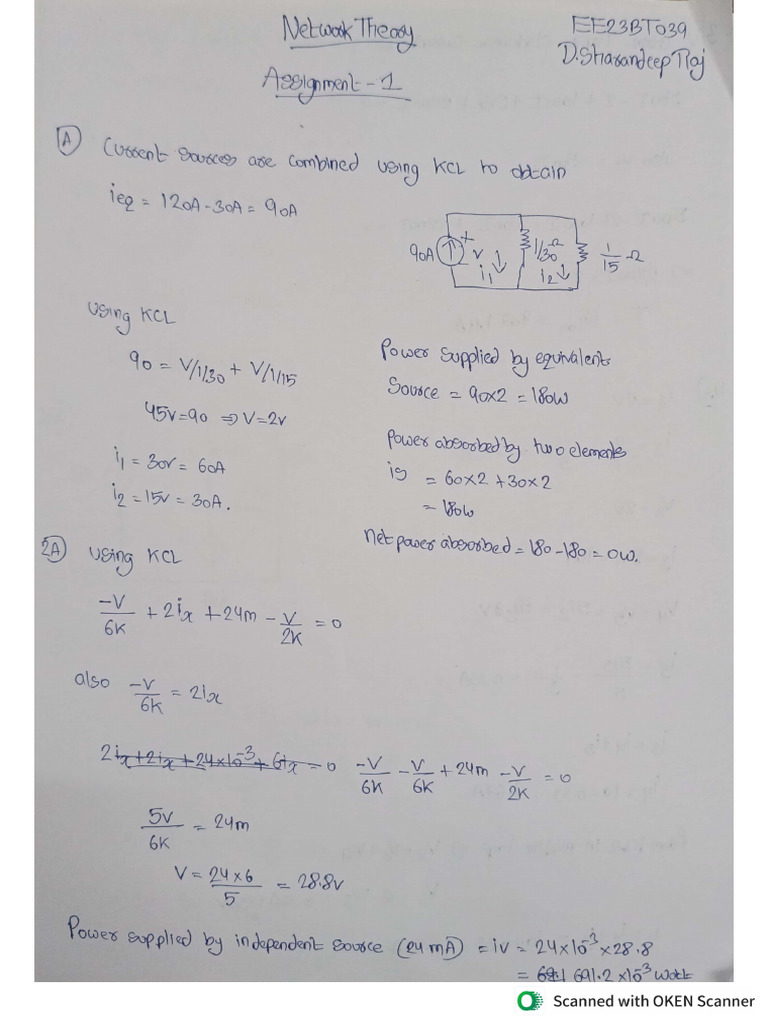 Network Theory
EE23BT039
D.Sharandeep Raj
Assignment - 1
A) Current sources are combined using KCL to obtain
ieq = 120A - 30A = 90A
90A + v i1 1/30 Ω i2 1/15 Ω
using KCL
90 = V/1/30 + V/1/15
45v = 90 ⇒ V = 2v
i1 = 30v = 60A
i2 = 15v = 30A.
Power supplied by equivalent
Source = 90x2 = 180W
Power absorbed by two elements
is = 60x2 + 30x2
= 180w
Net power absorbed = 180 - 180 = 0W.
2A) using KCL
-V/6K + 2ix + 24m - V/2K = 0
also -V/6K = 2ix
2ix + 2ix + 24x10^-3 + 6ix = 0 -V/6K - V/6K + 24m - V/2K = 0
5V/6K = 24m
V = 24x6/5 = 28.8V
Power supplied by independent source (24mA) = iv = 24x10^-3 x 28.8
= 691.2 x 10^-3 watt
Scanned with OKEN Scanner